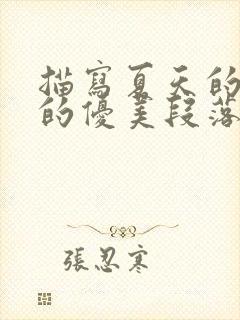 描寫夏天的
的優美段落
張忍寒